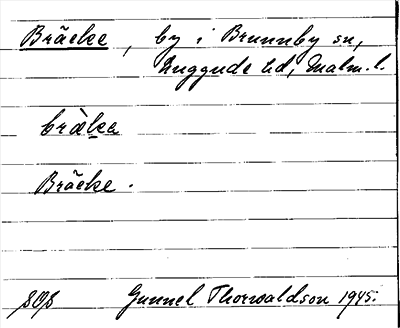 Bräcke, by i Brunnby sn,
Luggude hd, Malm. l.
bràka
Bräcke.
Gunnel Thorwaldson 1945.